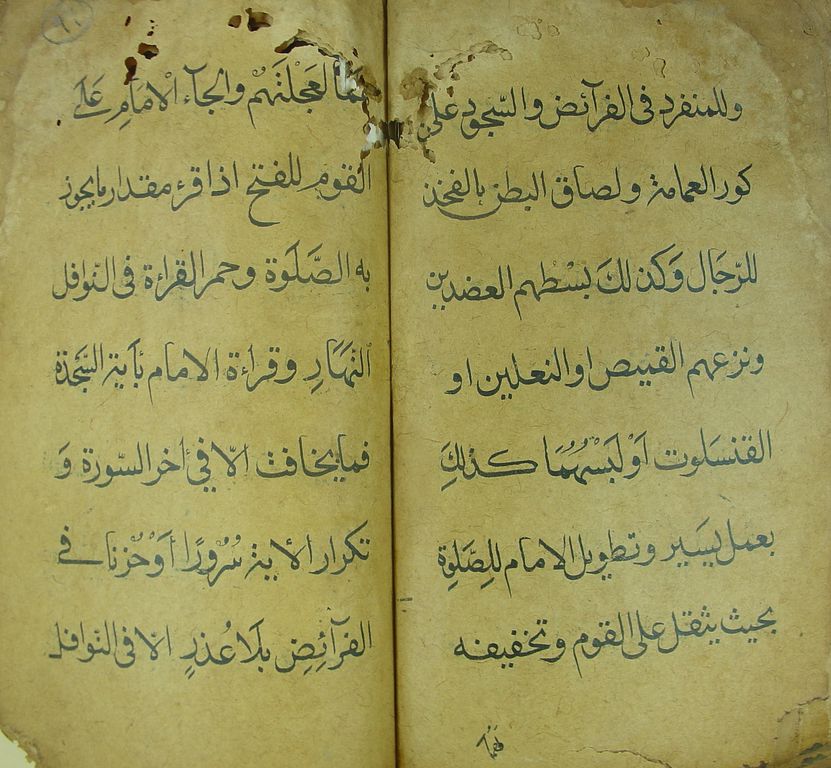 وللمنفرد فى الفرآئض والسّجود على
كور العمامة ولصاق البطن بالفخذ
للرّجال وَكذلكَ بسْطهم العضدين
ونزعهم القميص او النعلين او
القنسلوت اَوْ لَبسْهُمَا كذلكِ
بعمل يَسَير وتطويل الامام للِصَّلوِة
بحيث يثقل على القوم وتخفيفه
لعجلتَهُم والجآء الامَامِ عَلَے
القوم للفتح اذا قرء مقدار ما يجوز
به الصَّلَوة وجهر القراءة فى النّوافل
النَّهَارِ وقراءة الامام بأية السَّجدة
فما يخافت الاّ في أخر السّورة وَ
تكرار الأية سُرُورًا أوْ حُزنا فے
الفرآئِضِ بلَا عُذرٍ الا فى النوافل
١٠